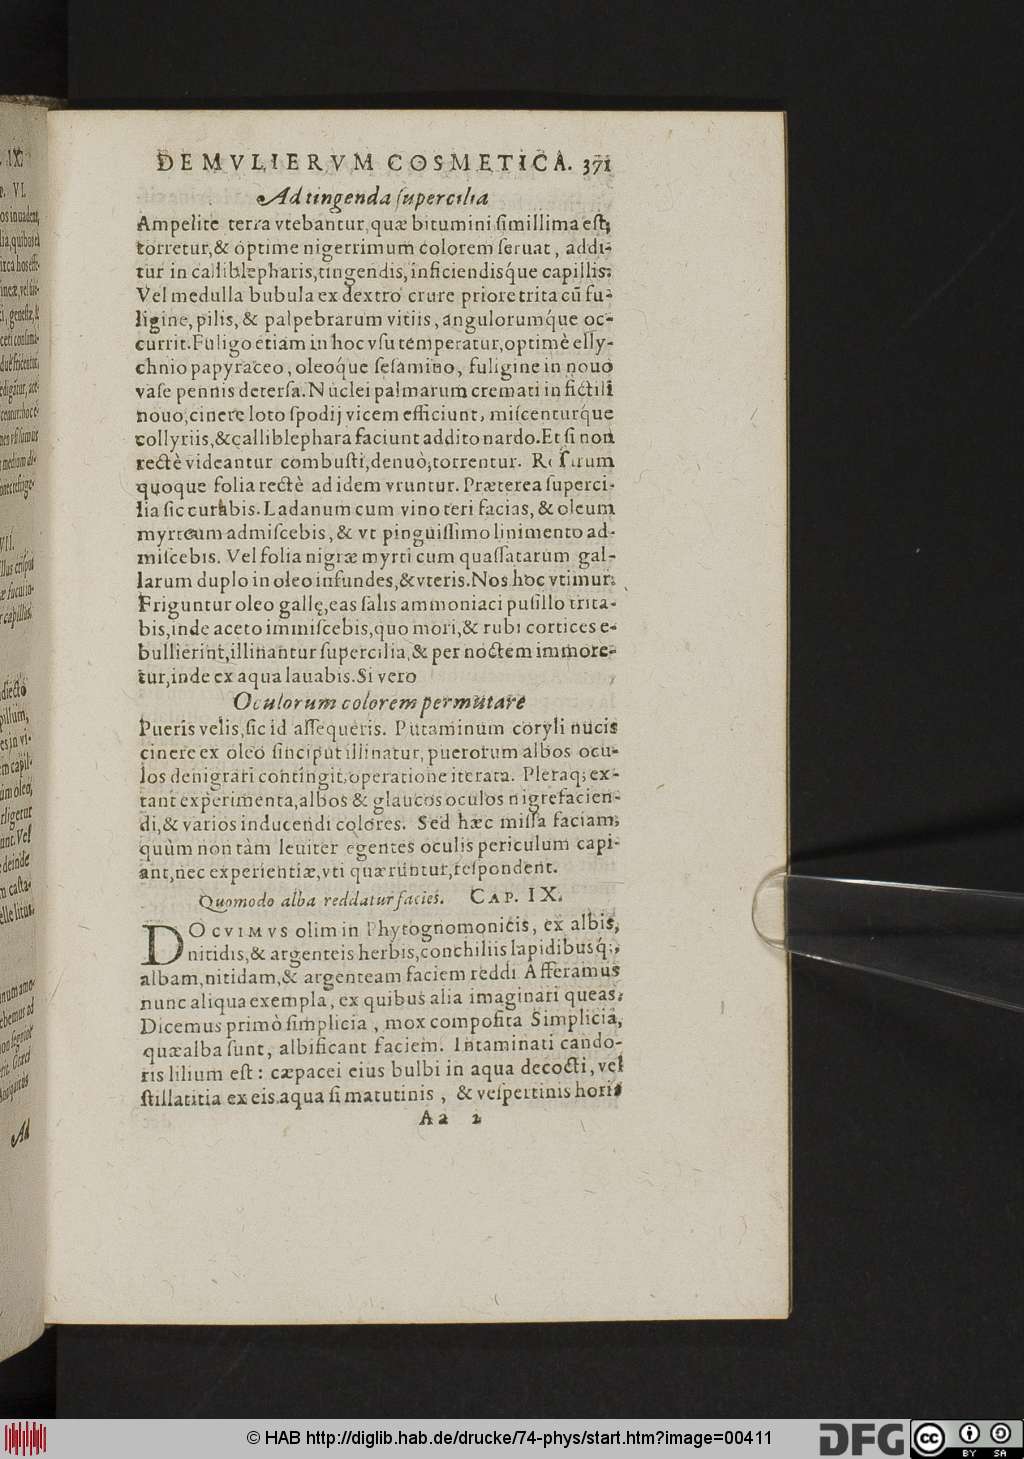 DE MVLIERVM COSMETICA. 371
Ad tingenda ſupercilia
Ampelite terra vtebantur, quæ bitumini ſimillima eſt,
torretur, & optime nigerrimum colorem ſeruat, addi-
tur in calliblepharis, tingendis, inficiendisq́ue capillis:
Vel medulla bubula ex dextro crure priore trita cū fu-
ligine, pilis, & palpebrarum vitiis, angulorumq́ue oc-
currit. Fuligo etiam in hoc vſu temperatur, optimè elly-
chnio papyraceo, oleoq́ue ſeſamino, fuligine in nouo
vaſe pennis deterſa. Nuclei palmarum cremati in fictili
nouo, cinere loto ſpodij vicem efficiunt, miſcenturq́ue
collyriis, & calliblephara faciunt addito nardo. Et ſi non
rectè videantur combuſti, denuò, torrentur. Roſarum
quoque folia rectè ad idem vruntur. Præterea ſuperci-
lia ſic curabis. Ladanum cum vino teri facias, & oleum
myrteum admiſcebis, & vt pinguiſſimo linimento ad-
miſcebis. Vel folia nigræ myrti cum quaſſatarum gal-
larum duplo in oleo infundes, & vteris. Nos hoc vtimur.
Friguntur oleo gallę, eas ſalis ammoniaci puſillo trita-
bis, inde aceto immiſcebis, quo mori, & rubi cortices e-
bullierint, illinantur ſupercilia, & per noctem immore-
tur, inde ex aqua lauabis. Si vero
Oculorum colorem permutare
Pueris velis, ſic id aſſequeris. Putaminum coryli nucis
cinere ex oleo ſinciput illinatur, puerorum albos ocu-
los denigrari contingit, operatione iterata. Pleraq; ex-
tant experimenta, albos & glaucos oculos nigrefacien-
di, & varios inducendi colores. Sed hæc miſſa faciam,
quùm non tàm leuiter egentes oculis periculum capi-
ant, nec experientiæ, vti quæruntur, reſpondent.
Quomodo alba reddatur facies. CAP. IX.
DOCVIMVS olim in Phytognomonicis, ex albis,
nitidis, & argenteis herbis, conchiliis lapidibusq;,
albam, nitidam, & argenteam faciem reddi Afferamus
nunc aliqua exempla, ex quibus alia imaginari queas.
Dicemus primò ſimplicia, mox compoſita Simplicia,
quæ alba ſunt, albificant faciem. Intaminati cando-
ris lilium eſt: cæpacei eius bulbi in aqua decocti, vel
ſtillatitia ex eis aqua ſi matutinis, & veſpertinis horis
Aa 2
© HAB http://diglib.hab.de/drucke/74-phys/start.htm?image=00411
DFG
cc BY SA